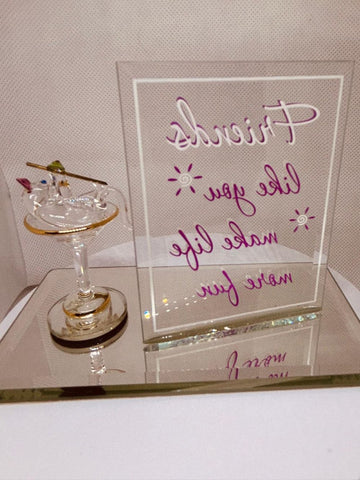 Friends
like you
make life
more fun
more f
me